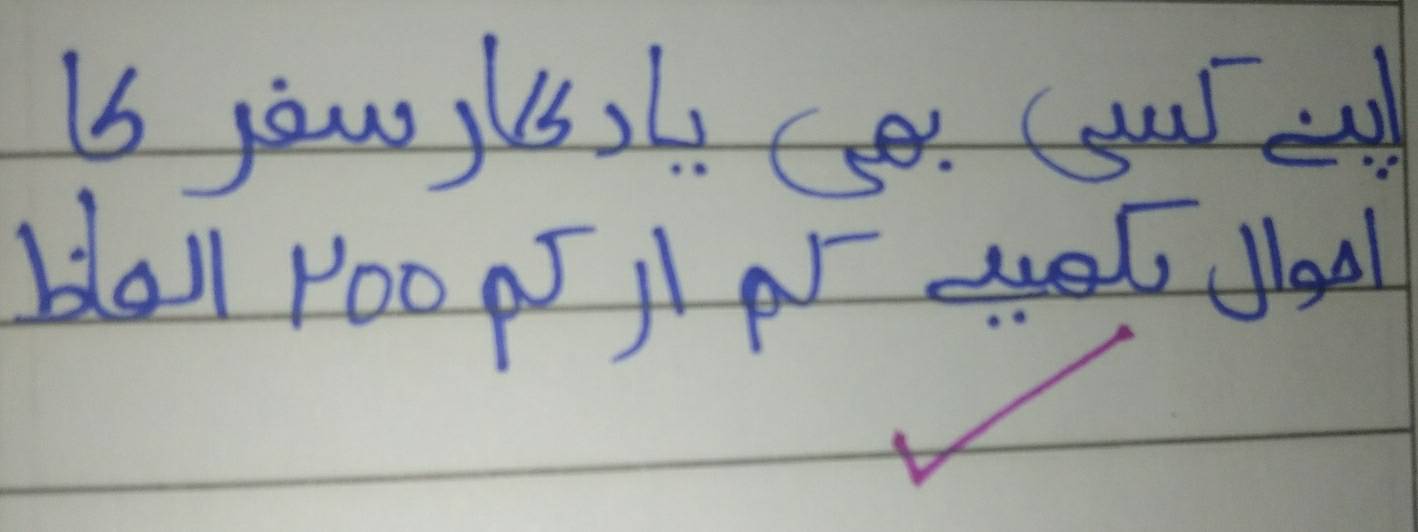 اپنے کسی بھی یادگار سفر کا
احوال لکھیے کم از کم ۲۰۰ الفاظ